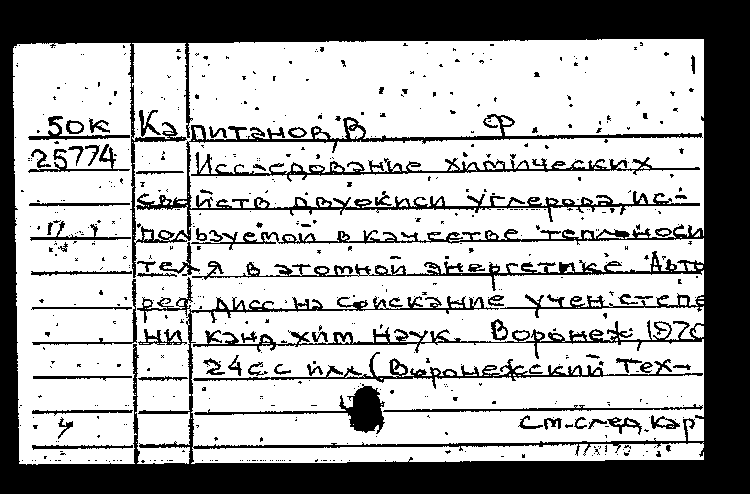 50к Капитанов, В Ф
25774 Исследование химических
свойств двуокиси углерода, ис-
пользуемой в качестве теплоноси
теля в атомной энергетике. Авто
реф. дисс на соискание учен. степе
ни канд. хим наук. Воронеж, 1970
24 с. с илл. (Воронежский тех-
см. след. кар
17X170